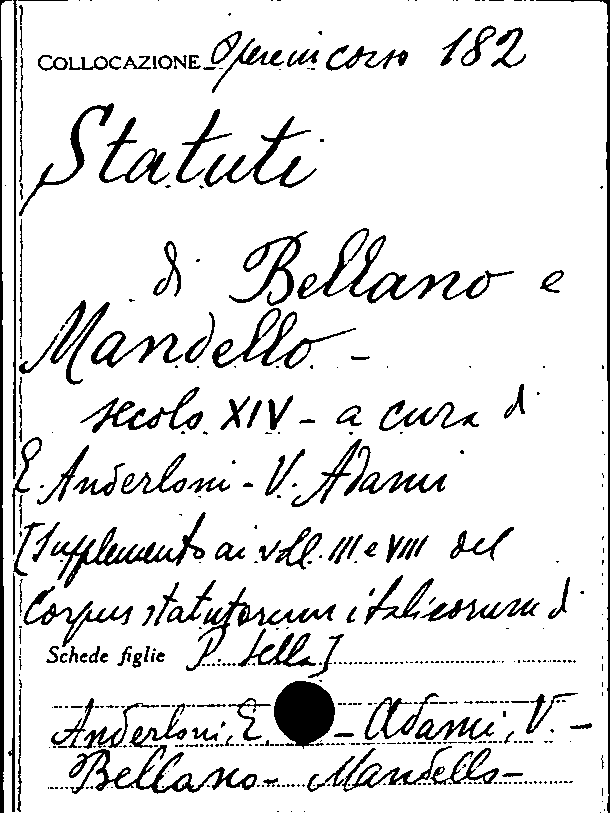 COLLOCAZIONE Opere in corso 182
Statuti
di Bellano e
Mandello -
secolo XIV - a cura di
E. Anderloni - V. Adami
[Supplemento ai voll. III e VIII del
Corpus statutorum italicorum di
Schede figlie P. Sella]
Anderloni, E. - Adami, V. -
Bellano - Mandello -